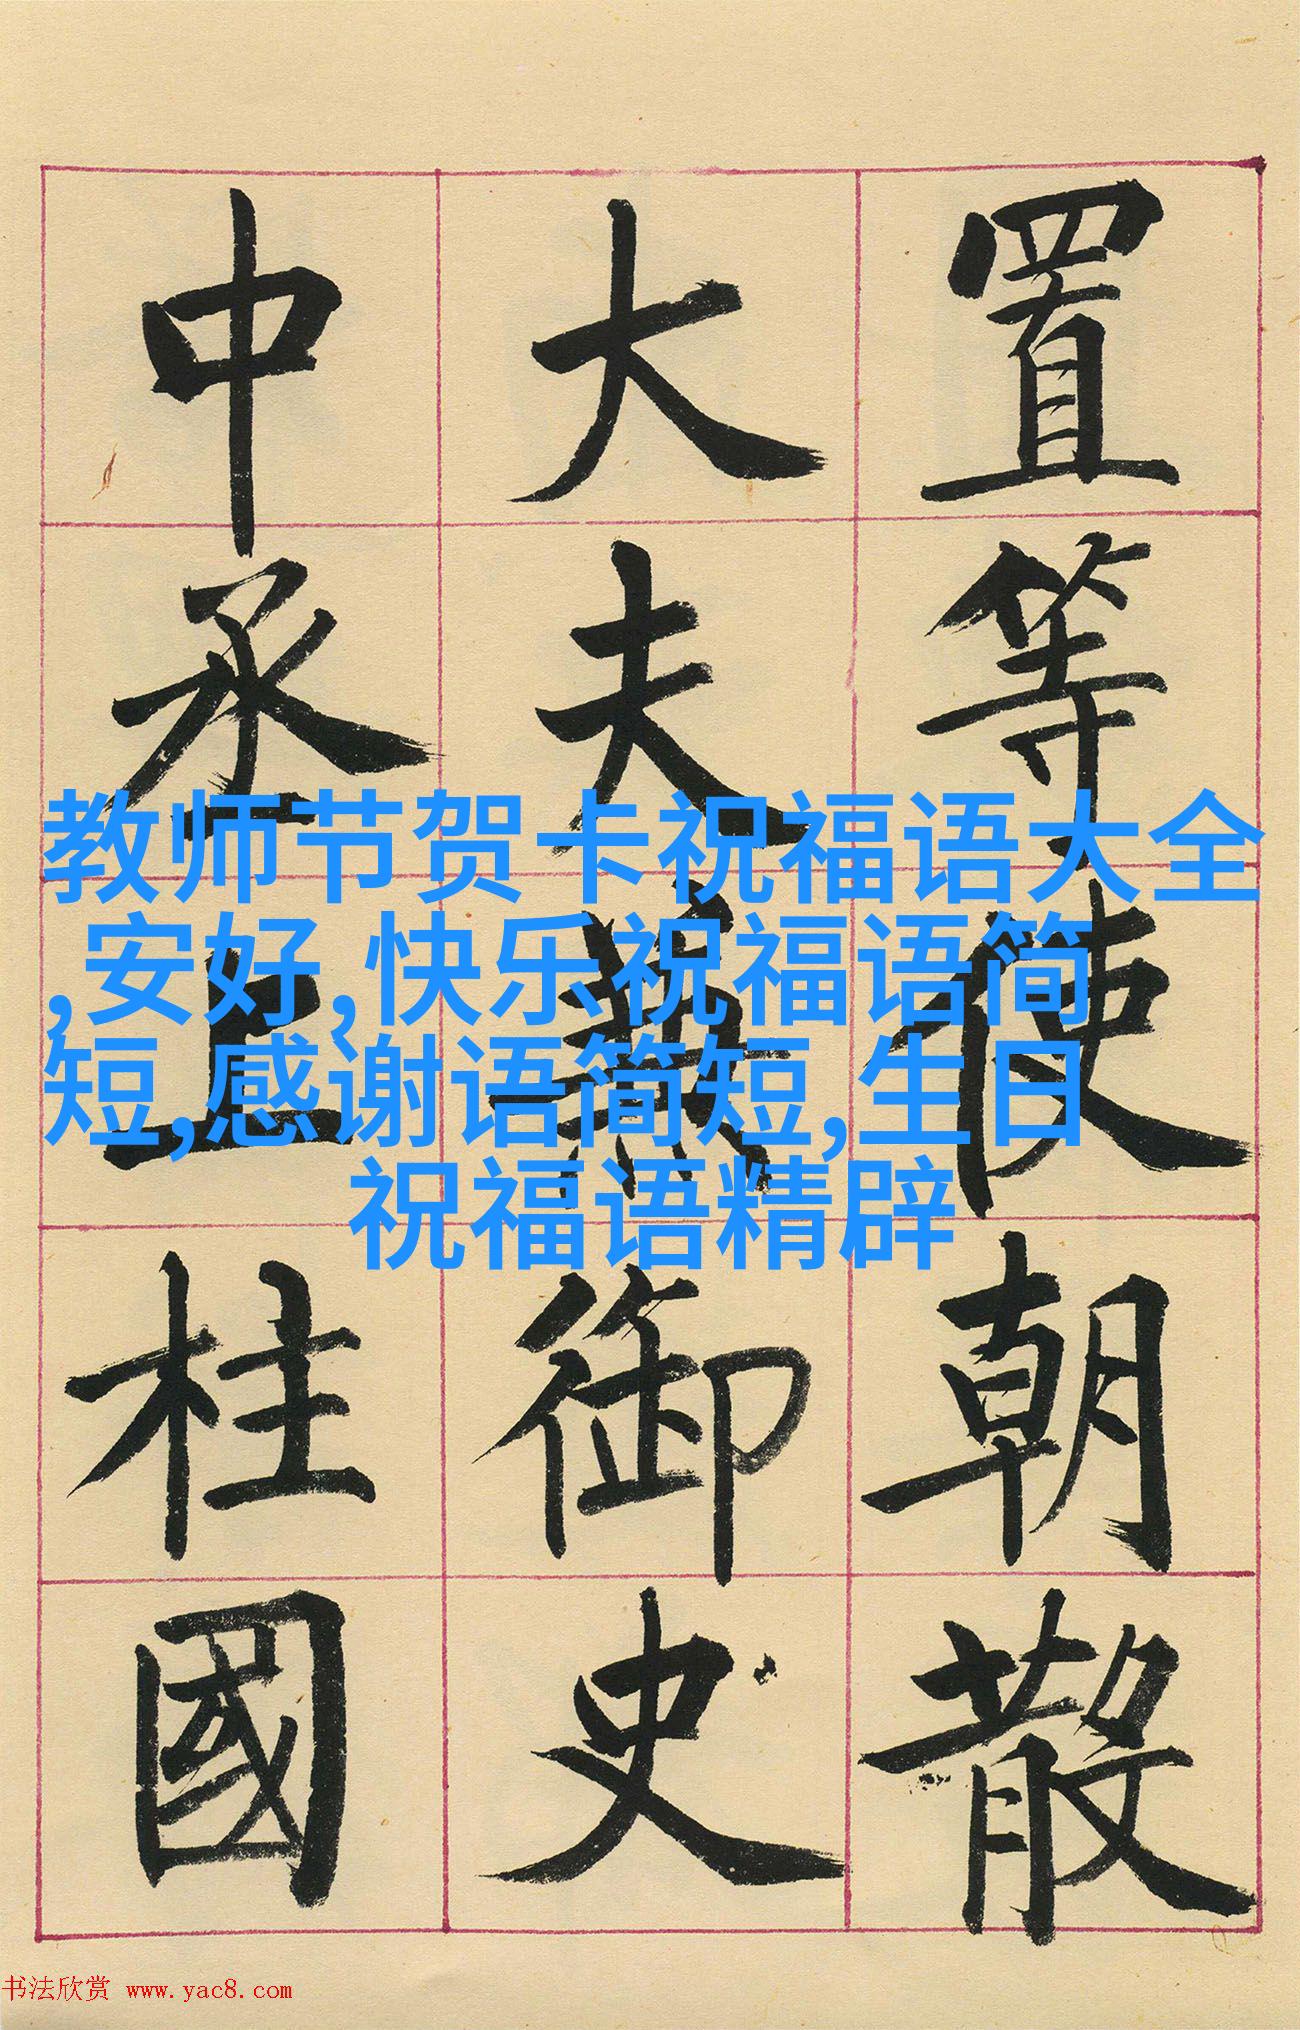 置等使朝散
大夫兼御史
中丞上柱國
教师节贺卡祝福语大全
,安好,快乐祝福语简
短,感谢语简短,生日
祝福语精辟
书法欣赏 www.yac8.com